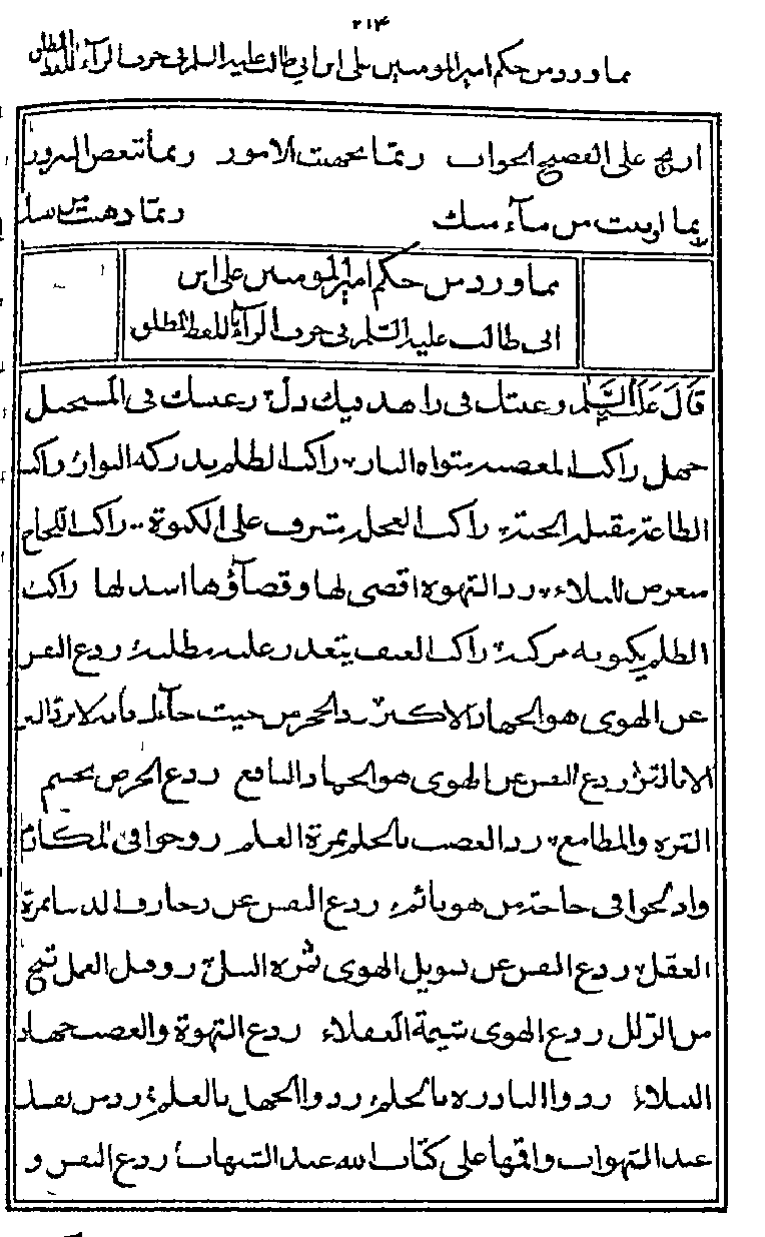 ٢١۴
مما ورد من حكم امير المومنين على ابن ابي طالب عليه السلم في حرف الرآء باللفظ المطلق
ارتج على الفصيح الجواب ربما تجهمت الامور ربما تنغص السرور
ربما دهيت من
مما ورد من حكم امير المومنين على ابن
ابى طالب عليه السلم فى حرف الرآء باللفظ المطلق
قَالَ عَلَيْهِ السَّلَم رغبتك فى زاهد فيك ذل رغبتك فى المستحيل
جهل راكب المعصيه مثواه النار راكب الظلم يدركه البوار راكب
الطاعة مقيله الجنة راكب العجل مشرف على الكبوة راكب اللجاج
متعرض للبلاء رد الشهوة اقضى لها وقضآؤها اشد لها راكب
الظلم يكبو به مركبه راكب العنف يتعذر عليه مطلبه ردع النفس
عن الهوى هو الجهاد الاكبر رد الحجر من حيث جآءك فانه لا يرد الشر
الا بالشر ردع النفس عن الهوى هو الجهاد النافع ردع الحرص يحسم
الشره والمطامع رد الغضب بالحلم ثمرة العلم روحوا فى المكارم
وادلجوا فى حاجة من هو نائم ردع النفس عن زخارف الدنيا ثمرة
العقل ردع النفس عن تسويل الهوى ثمره النبل
من الزلل ردع الهوى شيمة العقلاء ردع الشهوة والغضب جهاد
النبلاء ردوا البادره بالحلم ردوا الجهل بالعلم رد من نفسك
عند الشهوات واقمها على كتاب الله عند الشبهات ردع النفس و